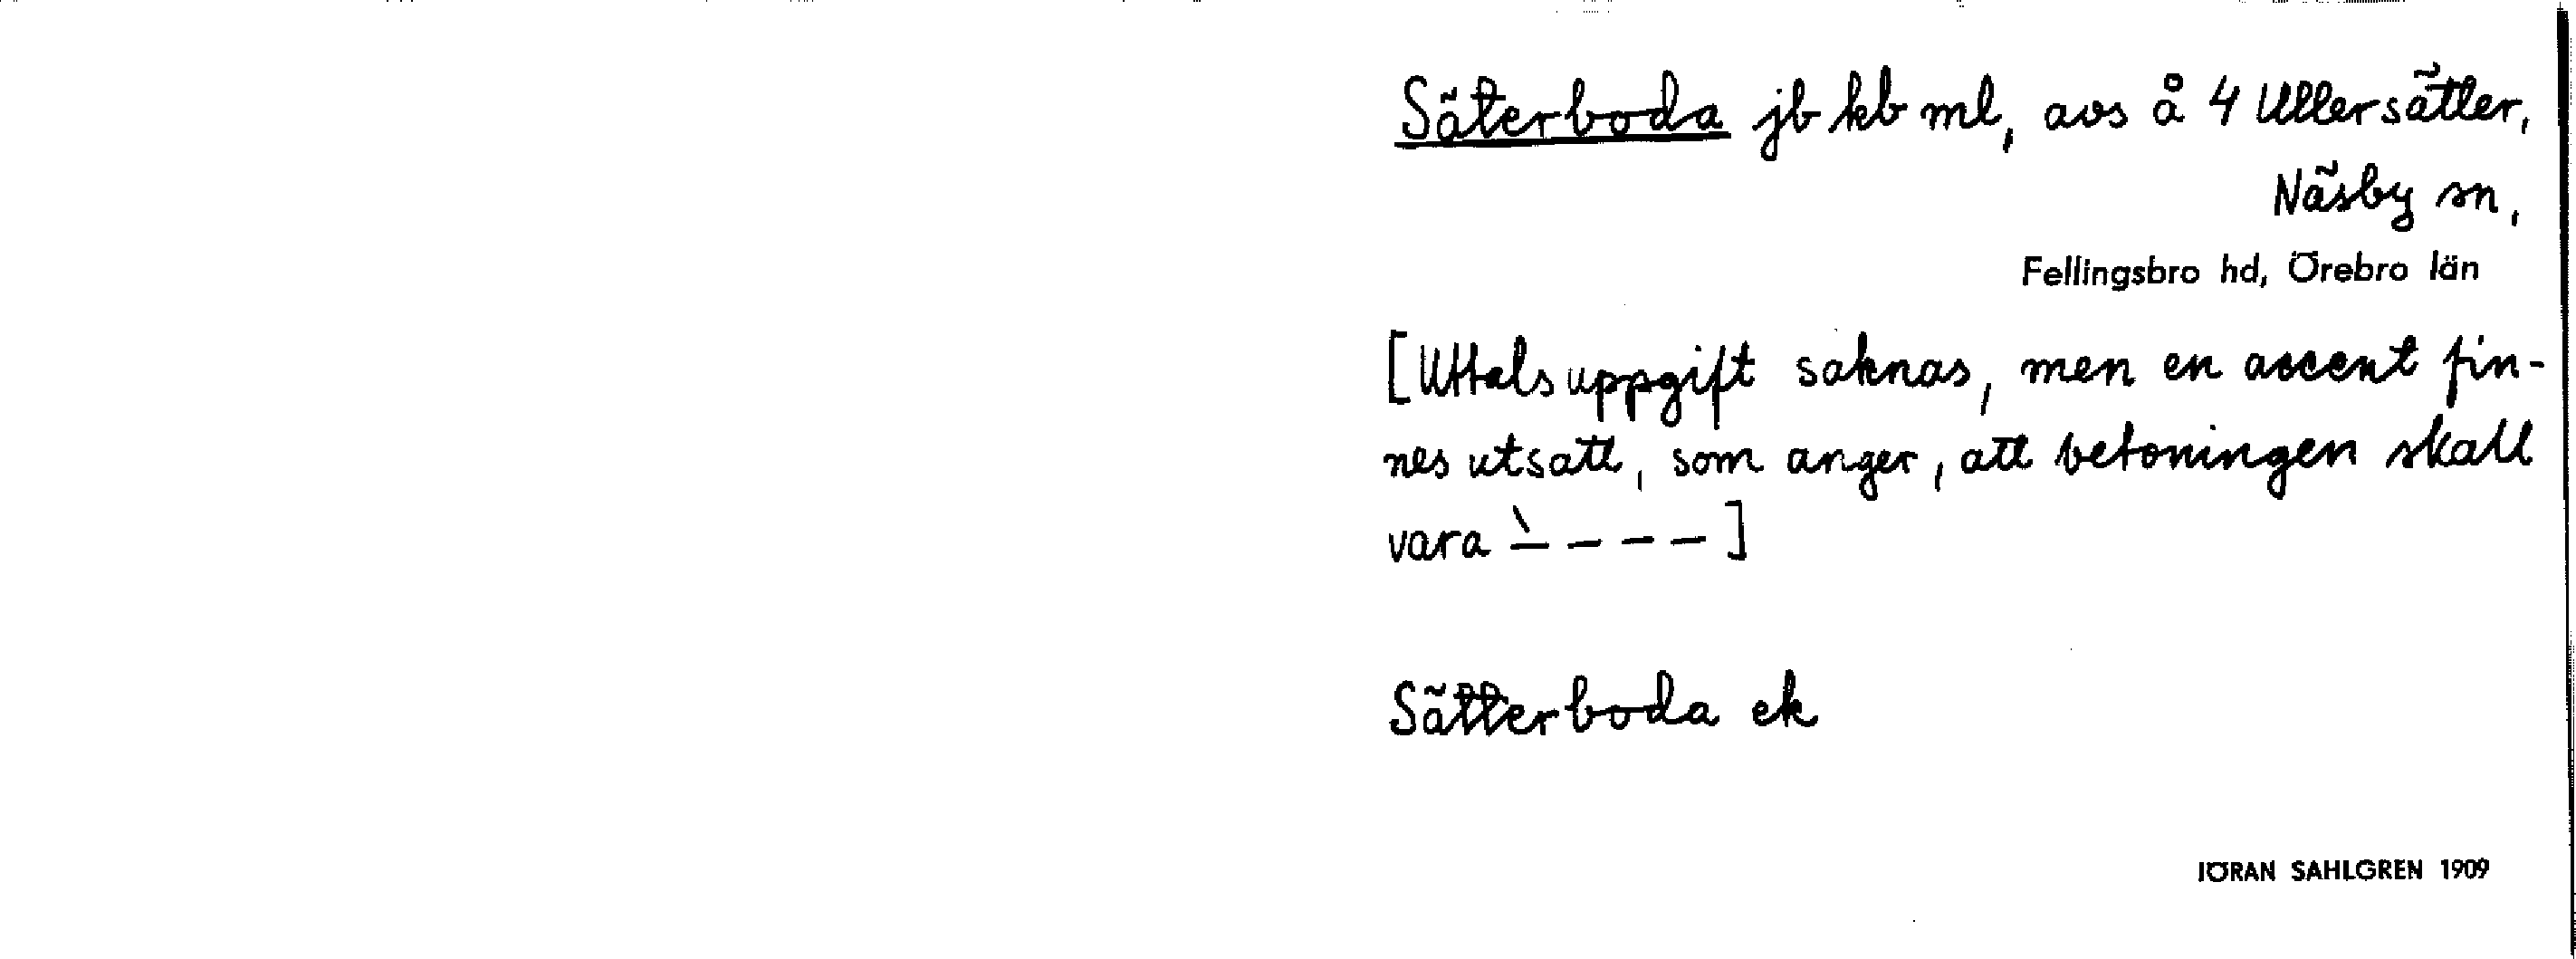 Säterboda jb kb ml, avs å 4 Ullersätter,
Näsby sn,
Fellingsbro hd, Örebro län
[Uttalsuppgift saknas, men en accent fin-
nes utsatt, som anger, att betoningen skall
vara `– – – –]
Sätterboda ek
JÖRAN SAHLGREN 1909